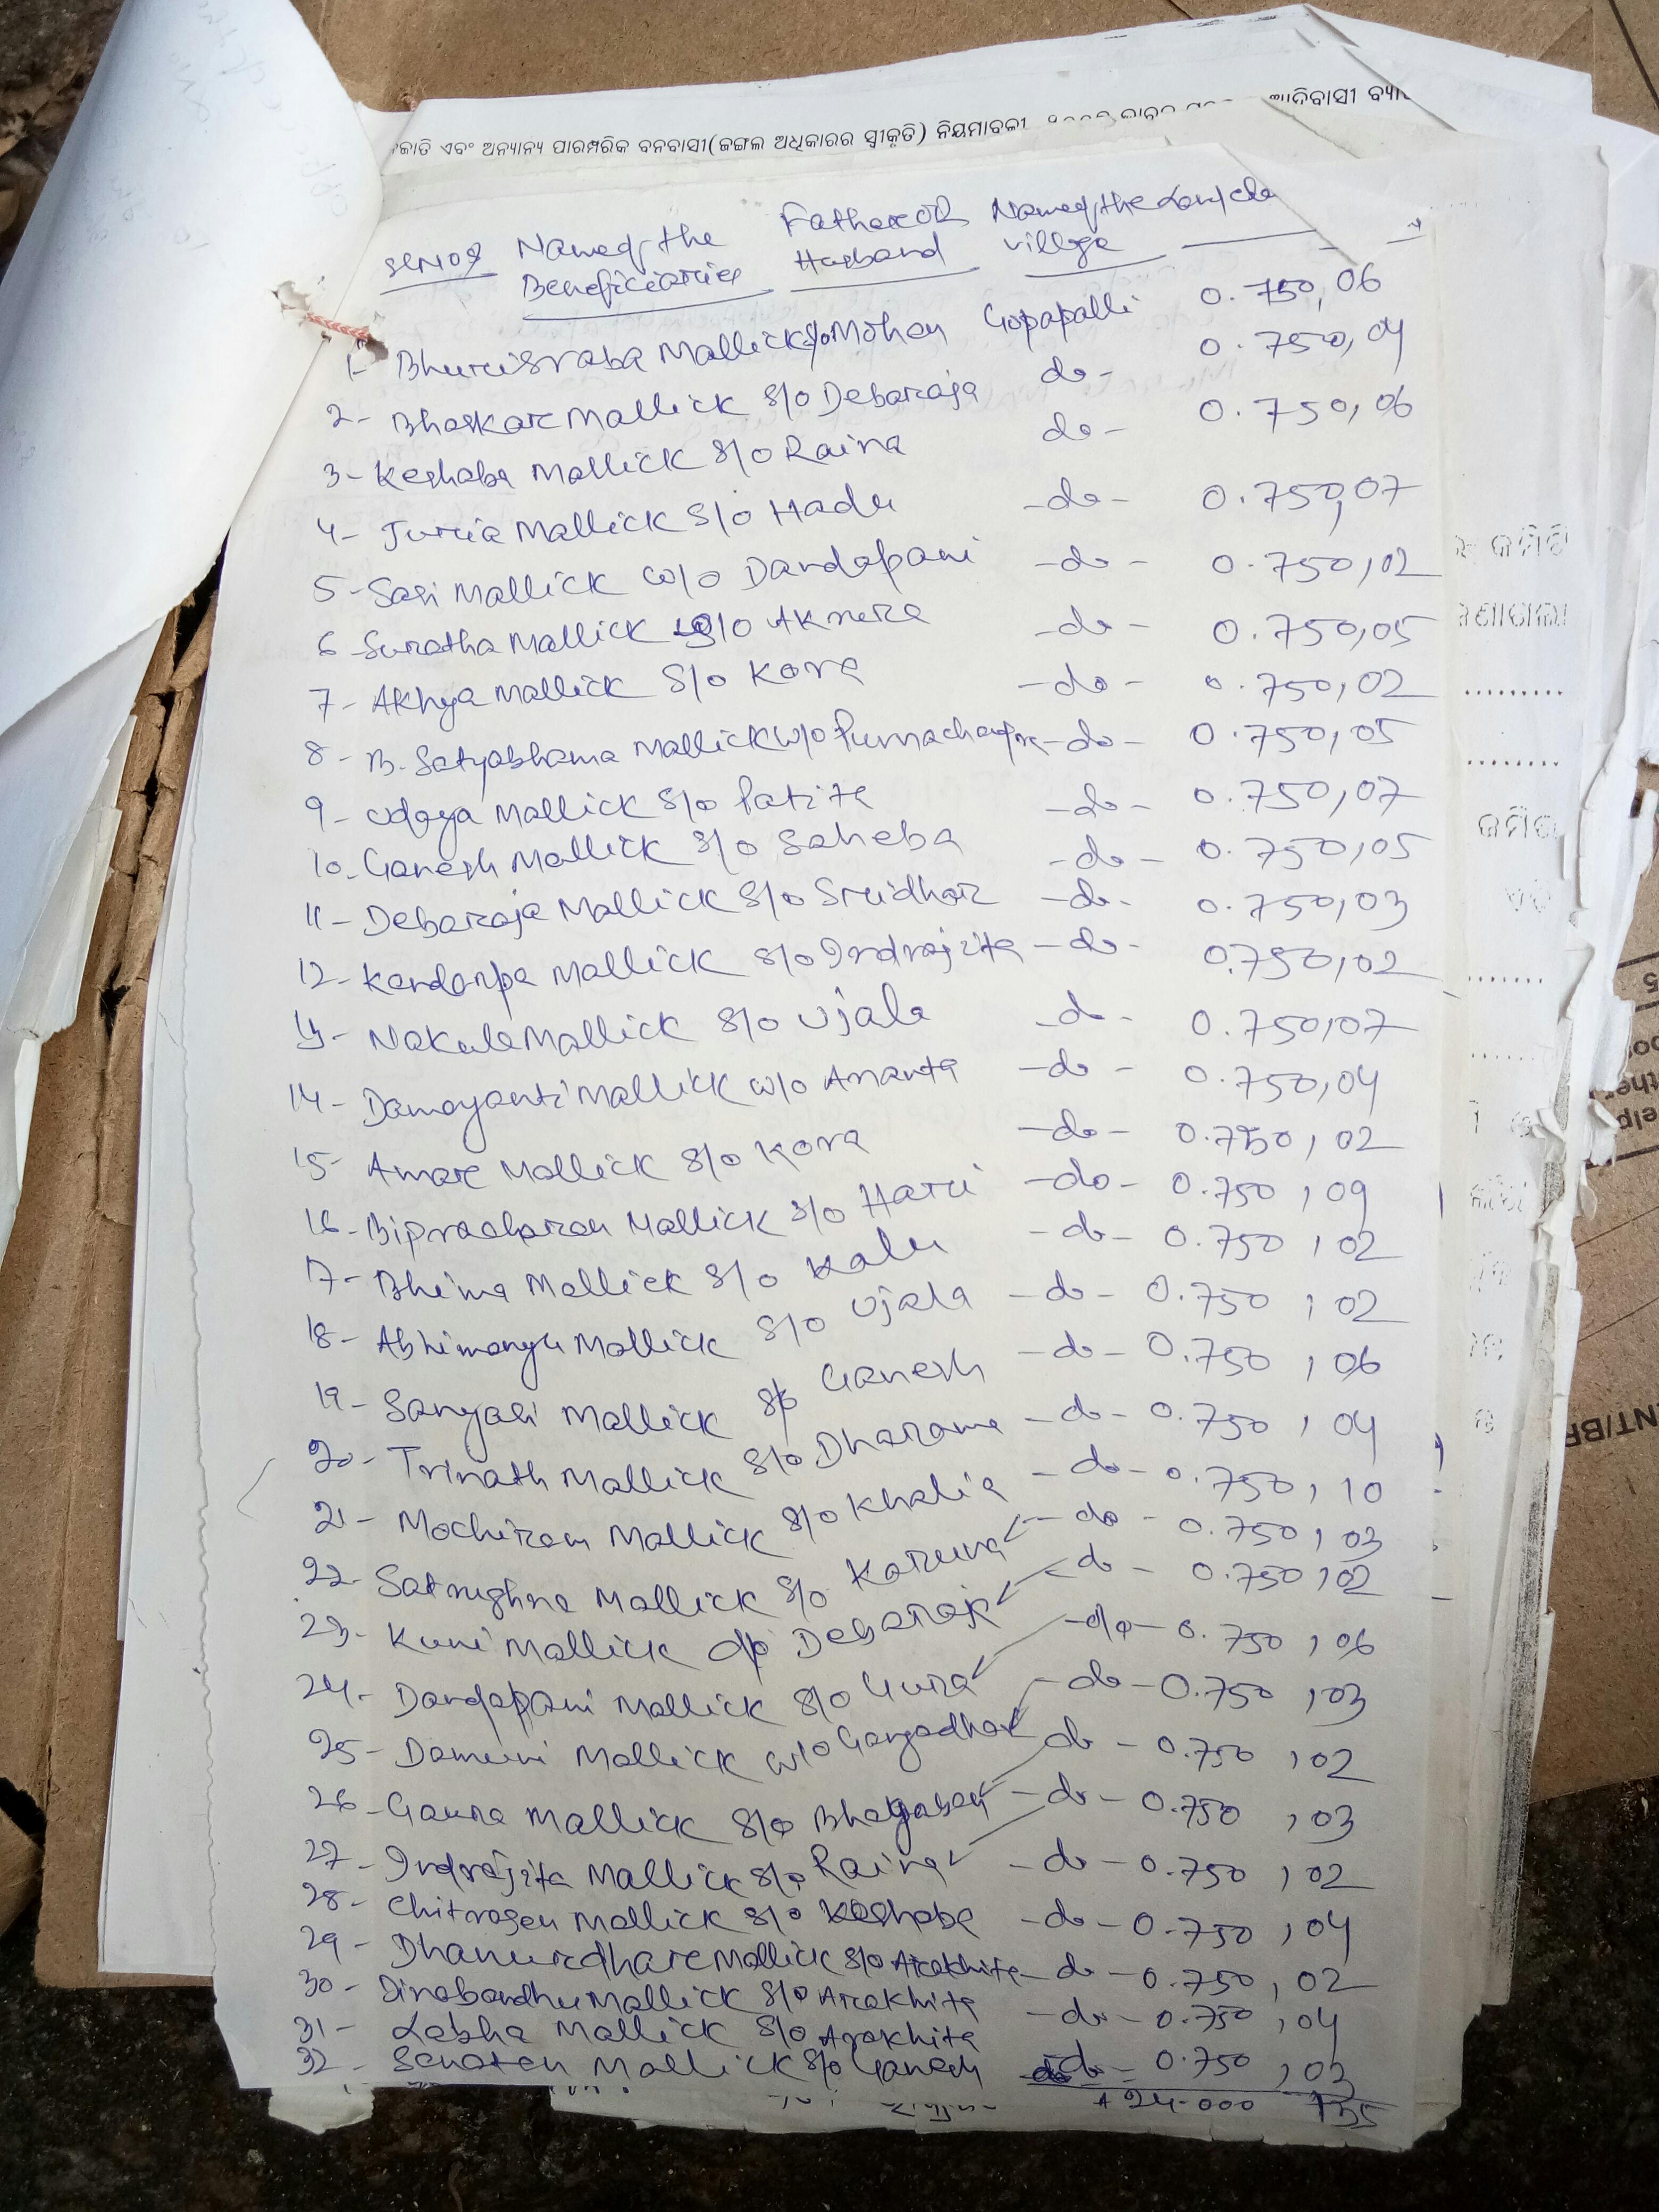 ଜାତି ଏବଂ ଅନ୍ୟାନ୍ୟ ପାରମ୍ପରିକ ବନବାସୀ(ଜଙ୍ଗଲ ଅଧିକାରର ସ୍ୱୀକୃତି) ନିୟମାବଳୀ ଆଦିବାସୀ
Sl No Name of the Beneficiaries Father OR Husband Name of the village Land
1- Bhurisraba Mallick S/o Mohan Gopapalli 0.750, 06
2- Bhaskar Mallick S/o Debaraja do- 0.750, 04
3- Keshaba Mallick S/o Raina do- 0.750, 06
4- Juria Mallick S/o Hadu -do- 0.750, 07
5- Sasi Mallick w/o Dandapani -do- 0.750, 02
6 Suratha Mallick S/o Akura -do- 0.750, 05
7- Akhya Mallick S/o Kora -do- 0.750, 02
8- B. Satyabhama Mallick w/o Purnachandra -do- 0.750, 05
9- Udaya Mallick S/o Patita -do- 0.750, 07
10- Ganesh Mallick S/o Saheba -do- 0.750, 05
11- Debaraja Mallick S/o Sridhar -do- 0.750, 03
12- Kandarpa Mallick S/o Indrajita -do- 0.750, 02
13- Nakula Mallick S/o Ujala -do- 0.750, 07
14- Damayanti Mallick w/o Ananta -do- 0.750, 04
15- Amar Mallick S/o Kora -do- 0.750, 02
16- Bipracharan Mallick S/o Hari -do- 0.750, 09
17- Bhima Mallick S/o Kalu -do- 0.750, 02
18- Abhimanyu Mallick S/o Ujala -do- 0.750, 02
19- Sanyasi Mallick S/o Ganesh -do- 0.750, 06
20- Trinath Mallick S/o Dharama -do- 0.750, 04
21- Mochiram Mallick S/o Khalia -do- 0.750, 10
22- Satrughna Mallick S/o Karuna -do- 0.750, 03
23- Kuni Mallick d/o Debaraj -do- 0.750, 02
24- Dandapani Mallick S/o Gura -do- 0.750, 06
25- Damuni Mallick w/o Gangadhar -do- 0.750, 03
26- Gaura Mallick S/o Bhagaban do- 0.750, 02
27- Indrajita Mallick S/o Raina -do- 0.750, 03
28- Chitrasen Mallick S/o Keshaba -do- 0.750, 02
29- Dhanurdhar Mallick S/o Arakhita -do- 0.750, 04
30- Dinabandhu Mallick S/o Arakhita -do- 0.750, 02
31- Labha Mallick S/o Arakhita -do- 0.750, 04
32- Sanatan Mallick S/o Ganesh do- 0.750, 03
24.000 135